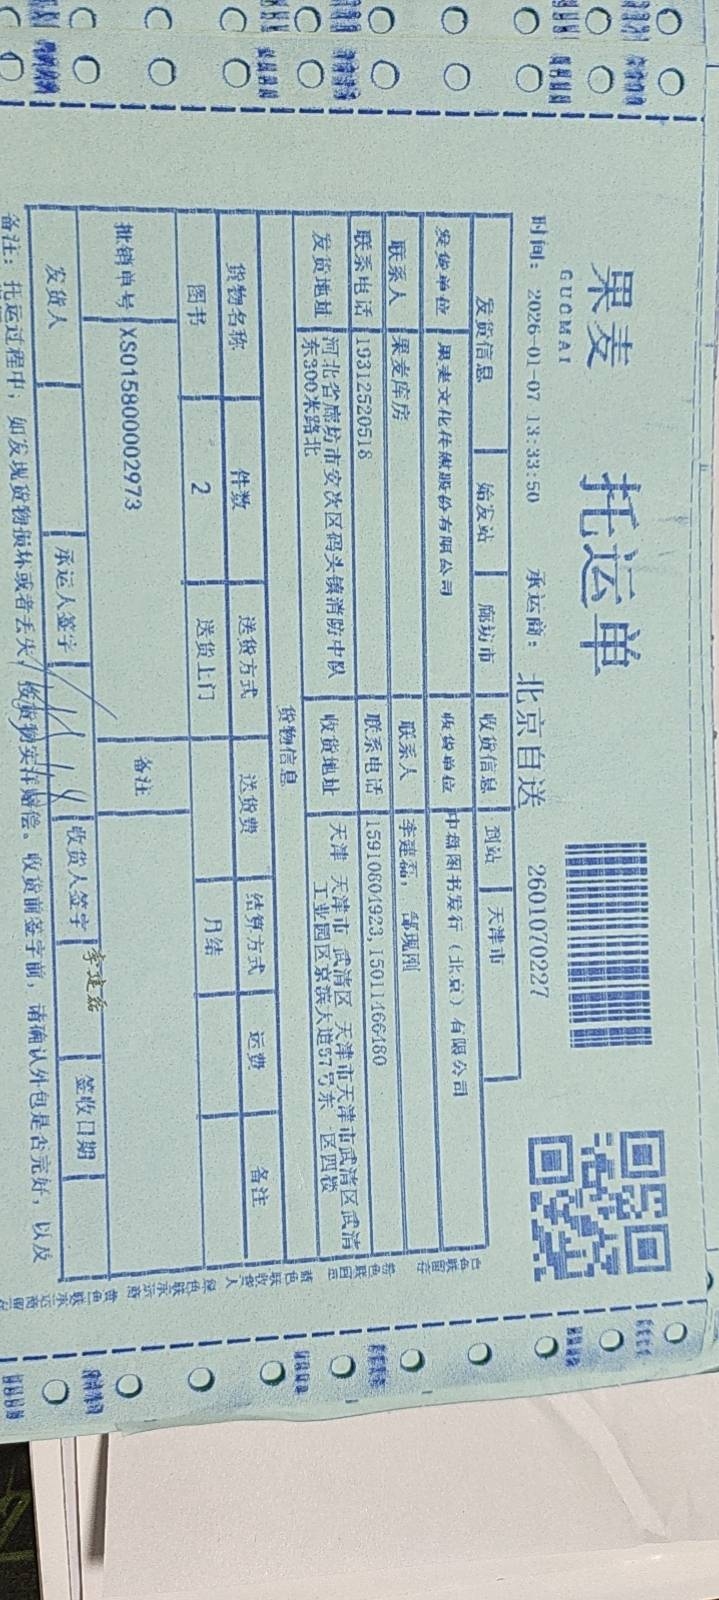 果麦
GUOMAI
托运单
时间: 2026-01-07 13:33:50 承运商: 北京自送 2601070227
发货信息 始发站 廊坊市 收货信息 到站 天津市
发货单位 果麦文化传媒股份有限公司 收货单位 中盘图书发行（北京）有限公司
联系人 果麦库房 联系人 李建磊,
联系电话 19312520518 联系电话 15910804923, 15011466480
发货地址 河北省廊坊市安次区码头镇消防中队 收货地址 天津 天津市 武清区 天津市天津市武清区武清
东300米路北 工业园区京滨大道57号东 区四楼
货物信息
货物名称 件数 送货方式 送货费 结算方式 运费 备注
图书 2 送货上门 月结
批销单号 XS01580002973 备注
发货人 承运人签字 收货人签字 李建磊 签收日期
备注: 托运过程中, 如发现货物损坏或者丢失, 按货物实际赔偿。收货前签字前, 请确认外包是否完好, 以及